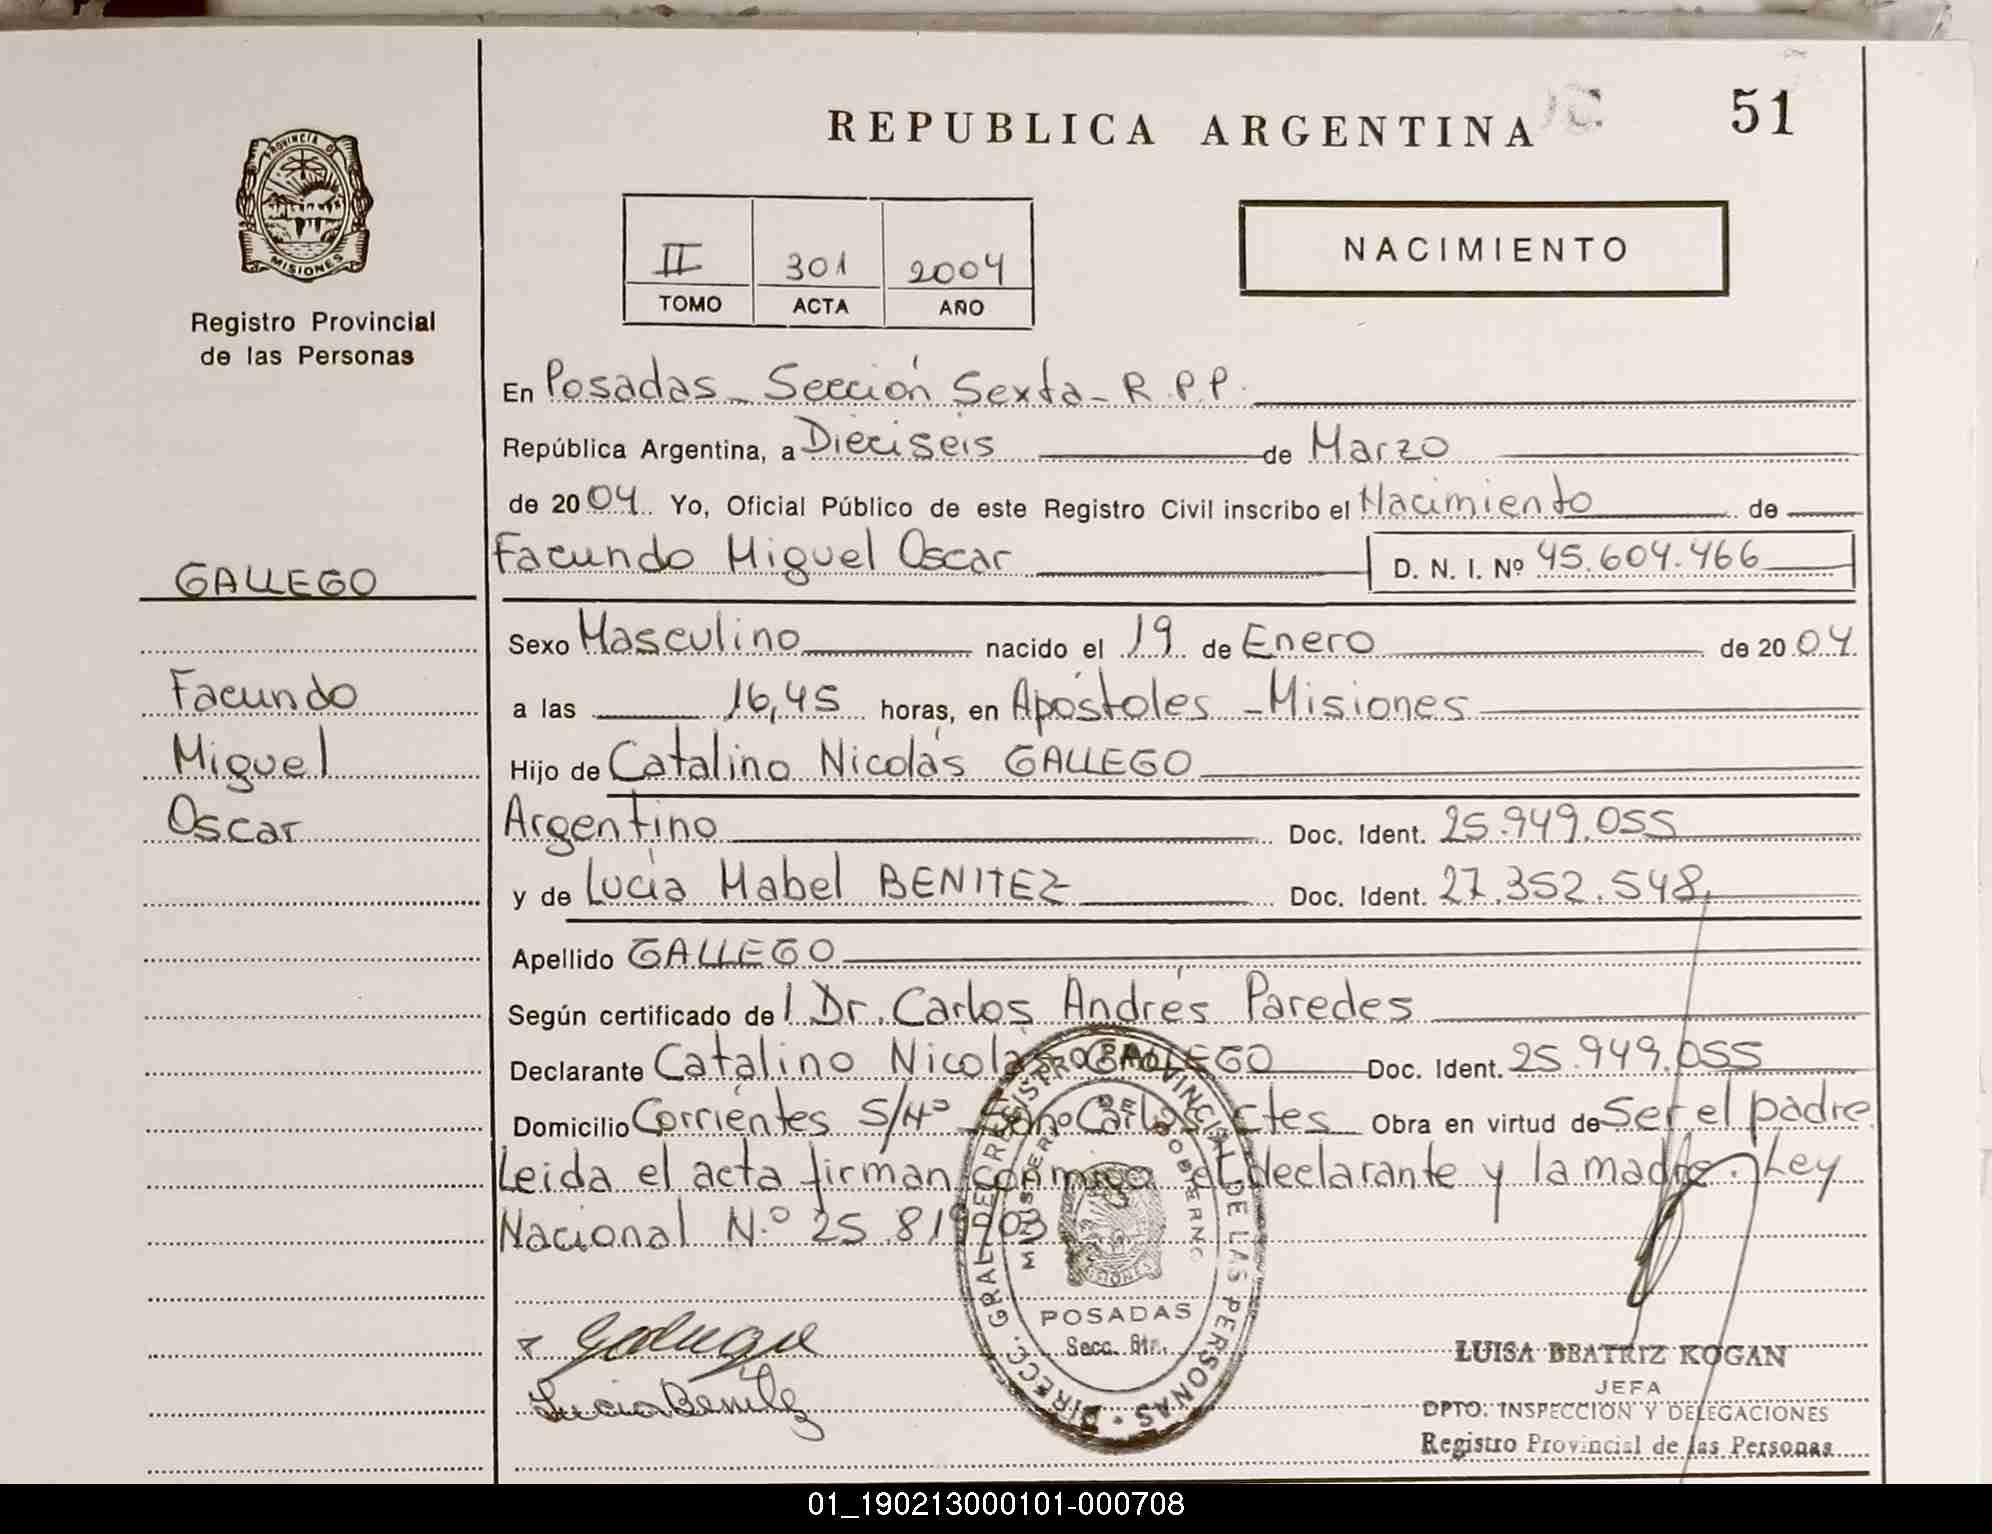 REPUBLICA ARGENTINA
51
PROVINCIA DE
MISIONES
Registro Provincial
de las Personas
II 301 2004
TOMO ACTA AÑO
NACIMIENTO
En Posadas - Sección Sexta - R.P.P.
República Argentina, a Dieciseis de Marzo
de 2004. Yo, Oficial Público de este Registro Civil inscribo el Nacimiento de
GALLEGO
Facundo Miguel Oscar D. N. I. Nº 45.604.466
Sexo Masculino nacido el 19 de Enero de 2004
Facundo
a las 16,45 horas, en Apóstoles - Misiones
Miguel
Hijo de Catalino Nicolás GALLEGO
Oscar
Argentino Doc. Ident. 25.949.055
y de Lucía Mabel BENITEZ Doc. Ident. 27.352.548
Apellido GALLEGO
Según certificado del Dr. Carlos Andrés Paredes
Declarante Catalino Nicolás GALLEGO Doc. Ident. 25.949.055
Domicilio Corrientes S/Nº Carlos Ctes Obra en virtud de Ser el padre
Leida el acta firman conmigo el declarante y la madre. Ley
Nacional N.º 25.819/03
DIRECC. GRAL. DE REGISTRO PROVINCIAL DE LAS PERSONAS
MINISTERIO DE GOBIERNO
MISIONES
POSADAS
Secc. 6ta.
Lucia Benitez
LUISA BEATRIZ KOGAN
JEFA
DPTO. INSPECCION Y DELEGACIONES
Registro Provincial de las Personas
01_190213000101-000708